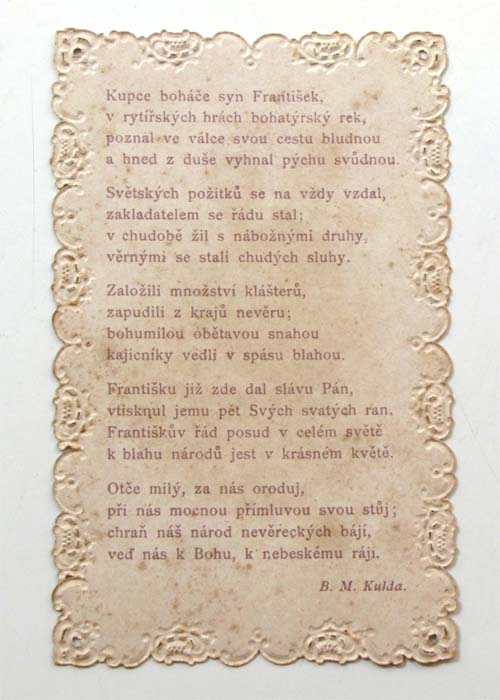 Kupce boháče syn František,
v rytířských hrách bohatýrský rek,
poznal ve válce svou cestu bludnou
a hned z duše vyhnal pýchu svůdnou.
Světských požitků se na vždy vzdal,
zakladatelem se řádu stal;
v chudobě žil s nábožnými druhy,
věrnými se stali chudých sluhy.
Založili množství klášterů,
zapudili z krajů nevěru;
bohumilou obětavou snahou
kajicníky vedli v spásu blahou.
Františku již zde dal slávu Pán,
vtisknul jemu pět Svých svatých ran.
Františkův řád posud v celém světě
k blahu národů jest v krásném květě.
Otče milý, za nás oroduj,
při nás mocnou přímluvou svou stůj;
chraň náš národ nevěreckých bájí,
veď nás k Bohu, k nebeskému ráji.
B. M. Kulda.